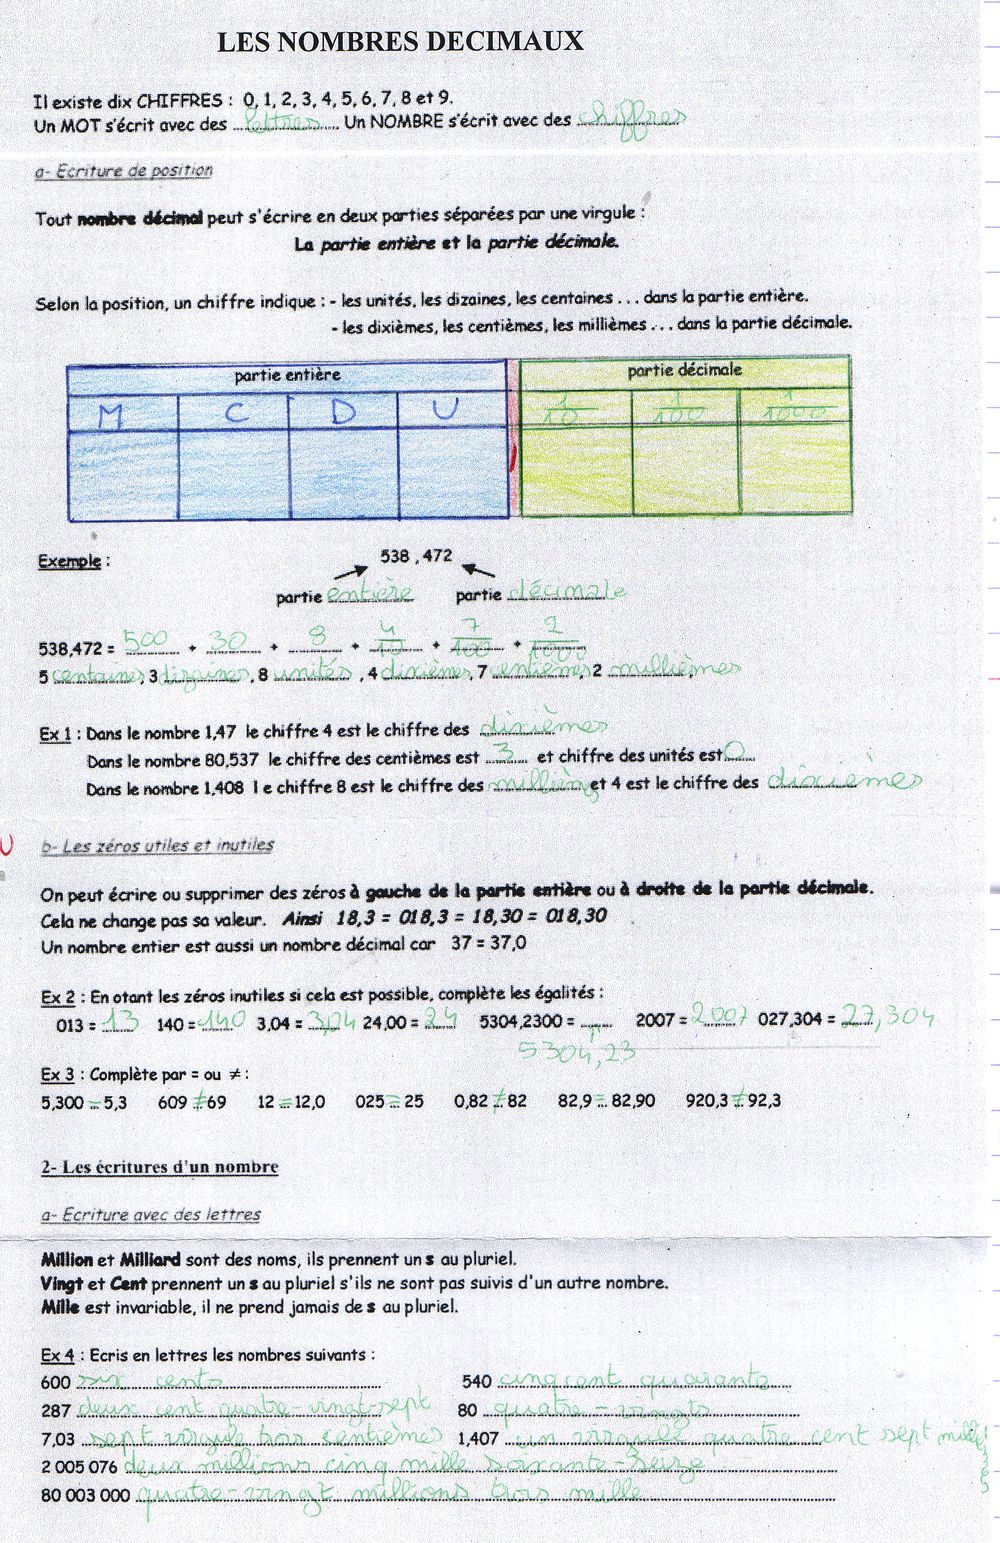 LES NOMBRES DECIMAUX
Il existe dix CHIFFRES : 0, 1, 2, 3, 4, 5, 6, 7, 8 et 9.
Un MOT s'écrit avec des lettres Un NOMBRE s'écrit avec des chiffres
a- Ecriture de position
Tout nombre décimal peut s'écrire en deux parties séparées par une virgule :
La partie entière et la partie décimale.
Selon la position, un chiffre indique : - les unités, les dizaines, les centaines . . . dans la partie entière.
- les dixièmes, les centièmes, les millièmes . . . dans la partie décimale.
partie entière partie décimale
M C D U , 1/10 1/100 1/1000
Exemple : 538 , 472
partie entière partie décimale
538,472 = 500 + 30 + 8 + 4/10 + 7/100 + 2/1000
5 centaines, 3 dizaines, 8 unités , 4 dixièmes, 7 centièmes, 2 millièmes
Ex 1 : Dans le nombre 1,47 le chiffre 4 est le chiffre des dixièmes
Dans le nombre 80,537 le chiffre des centièmes est 3 et chiffre des unités est 0
Dans le nombre 1,408 l e chiffre 8 est le chiffre des millièmes et 4 est le chiffre des dixièmes
b- Les zéros utiles et inutiles
On peut écrire ou supprimer des zéros à gauche de la partie entière ou à droite de la partie décimale.
Cela ne change pas sa valeur. Ainsi 18,3 = 018,3 = 18,30 = 018,30
Un nombre entier est aussi un nombre décimal car 37 = 37,0
Ex 2 : En otant les zéros inutiles si cela est possible, complète les égalités :
013 = 13 140 = 140 3,04 = 3,04 24,00 = 24 5304,2300 = ........ 2007 = 2007 027,304 = 27,304
5304,23
Ex 3 : Complète par = ou ≠ :
5,300 = 5,3 609 ≠ 69 12 = 12,0 025 = 25 0,82 ≠ 82 82,9 = 82,90 920,3 ≠ 92,3
2- Les écritures d'un nombre
a- Ecriture avec des lettres
Million et Milliard sont des noms, ils prennent un s au pluriel.
Vingt et Cent prennent un s au pluriel s'ils ne sont pas suivis d'un autre nombre.
Mille est invariable, il ne prend jamais de s au pluriel.
Ex 4 : Ecris en lettres les nombres suivants :
600 six cents 540 cinq cent quarante
287 deux cent quatre-vingt-sept 80 quatre-vingts
7,03 sept virgule trois centièmes 1,407 un virgule quatre cent sept millièmes
2 005 076 deux millions cinq mille soixante-seize
80 003 000 quatre-vingt millions trois mille